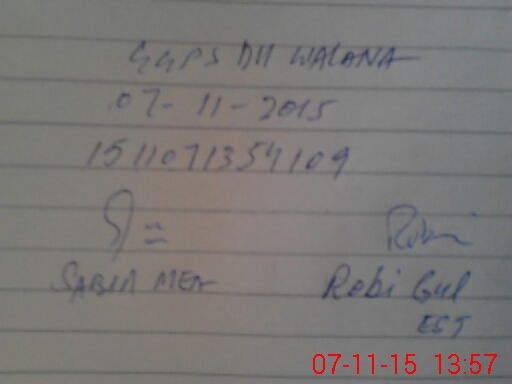 GGPS DH WALANA
07-11-2015
1511071354109
Robi
SABIR MEA
Robi Gul
EST
07-11-15 13:57